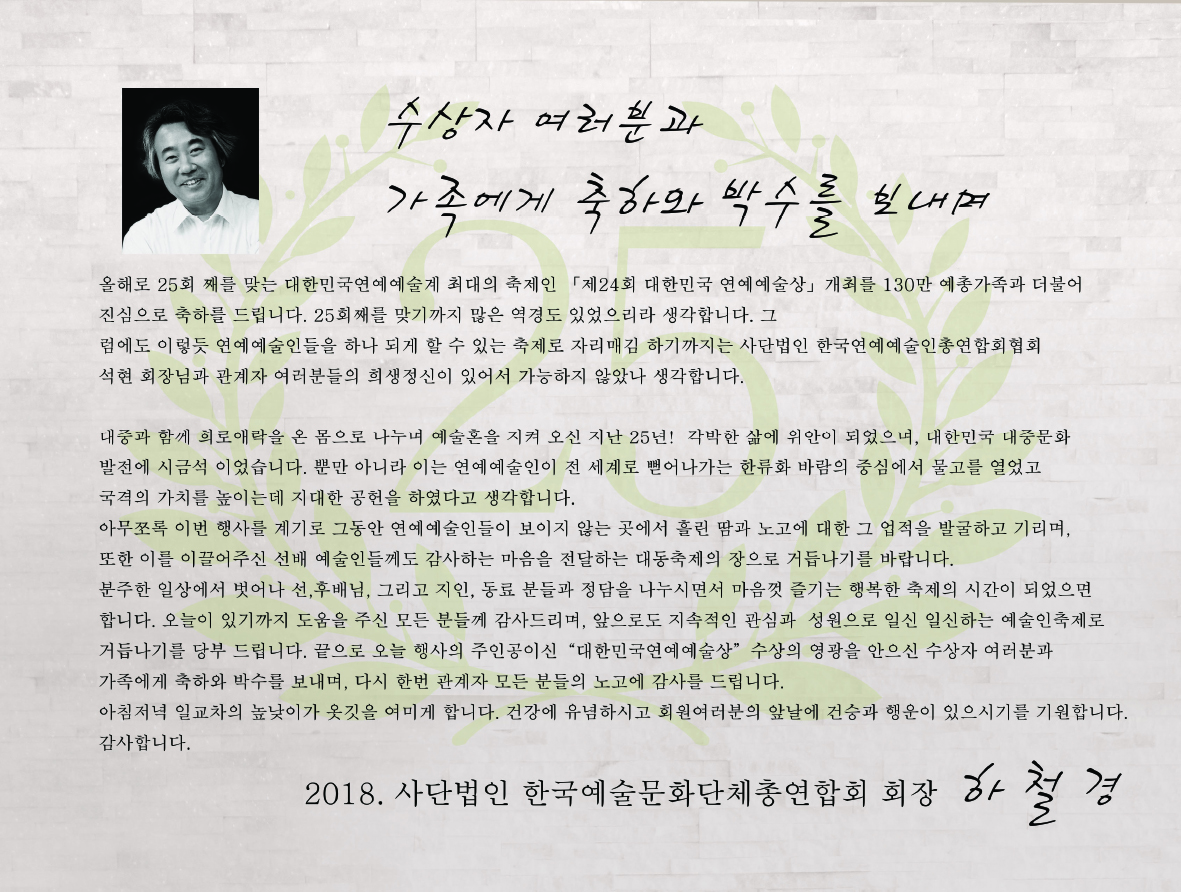 수상자 여러분과
가족에게 축하와 박수를 보내며
올해로 25회 째를 맞는 대한민국연예예술계 최대의 축제인 「제24회 대한민국 연예예술상」개최를 130만 예총가족과 더불어
진심으로 축하를 드립니다. 25회째를 맞기까지 많은 역경도 있었으리라 생각합니다. 그
럼에도 이렇듯 연예예술인들을 하나 되게 할 수 있는 축제로 자리매김 하기까지는 사단법인 한국연예예술인총연합회협회
석현 회장님과 관계자 여러분들의 희생정신이 있어서 가능하지 않았나 생각합니다.
대중과 함께 희로애락을 온 몸으로 나누며 예술혼을 지켜 오신 지난 25년! 각박한 삶에 위안이 되었으며, 대한민국 대중문화
발전에 시금석 이었습니다. 뿐만 아니라 이는 연예예술인이 전 세계로 뻗어나가는 한류화 바람의 중심에서 물고를 열었고
국격의 가치를 높이는데 지대한 공헌을 하였다고 생각합니다.
아무쪼록 이번 행사를 계기로 그동안 연예예술인들이 보이지 않는 곳에서 흘린 땀과 노고에 대한 그 업적을 발굴하고 기리며,
또한 이를 이끌어주신 선배 예술인들께도 감사하는 마음을 전달하는 대동축제의 장으로 거듭나기를 바랍니다.
분주한 일상에서 벗어나 선,후배님, 그리고 지인, 동료 분들과 정담을 나누시면서 마음껏 즐기는 행복한 축제의 시간이 되었으면
합니다. 오늘이 있기까지 도움을 주신 모든 분들께 감사드리며, 앞으로도 지속적인 관심과 성원으로 일신 일신하는 예술인축제로
거듭나기를 당부 드립니다. 끝으로 오늘 행사의 주인공이신 “대한민국연예예술상” 수상의 영광을 안으신 수상자 여러분과
가족에게 축하와 박수를 보내며, 다시 한번 관계자 모든 분들의 노고에 감사를 드립니다.
아침저녁 일교차의 높낮이가 옷깃을 여미게 합니다. 건강에 유념하시고 회원여러분의 앞날에 건승과 행운이 있으시기를 기원합니다.
감사합니다.
2018. 사단법인 한국예술문화단체총연합회 회장 하철경
25